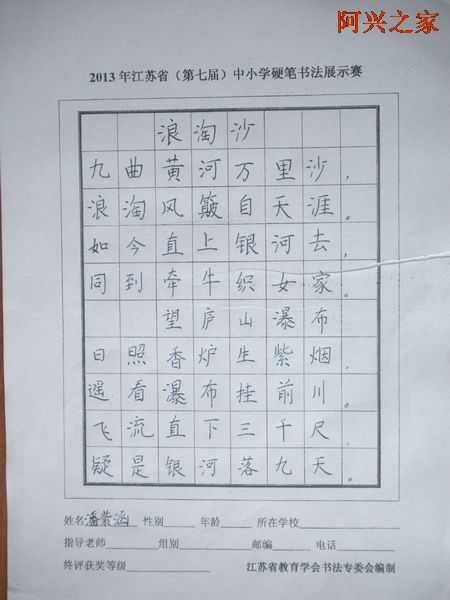 阿兴之家
2013年江苏省（第七届）中小学硬笔书法展示赛
浪淘沙
九曲黄河万里沙，
浪淘风簸自天涯。
如今直上银河去，
同到牵牛织女家。
望庐山瀑布
日照香炉生紫烟，
遥看瀑布挂前川。
飞流直下三千尺.
疑是银河落九天。
姓名 潘紫涵 性别 年龄 所在学校
指导老师 组别 邮编 电话
终评获奖等级 江苏省教育学会书法专委会编制